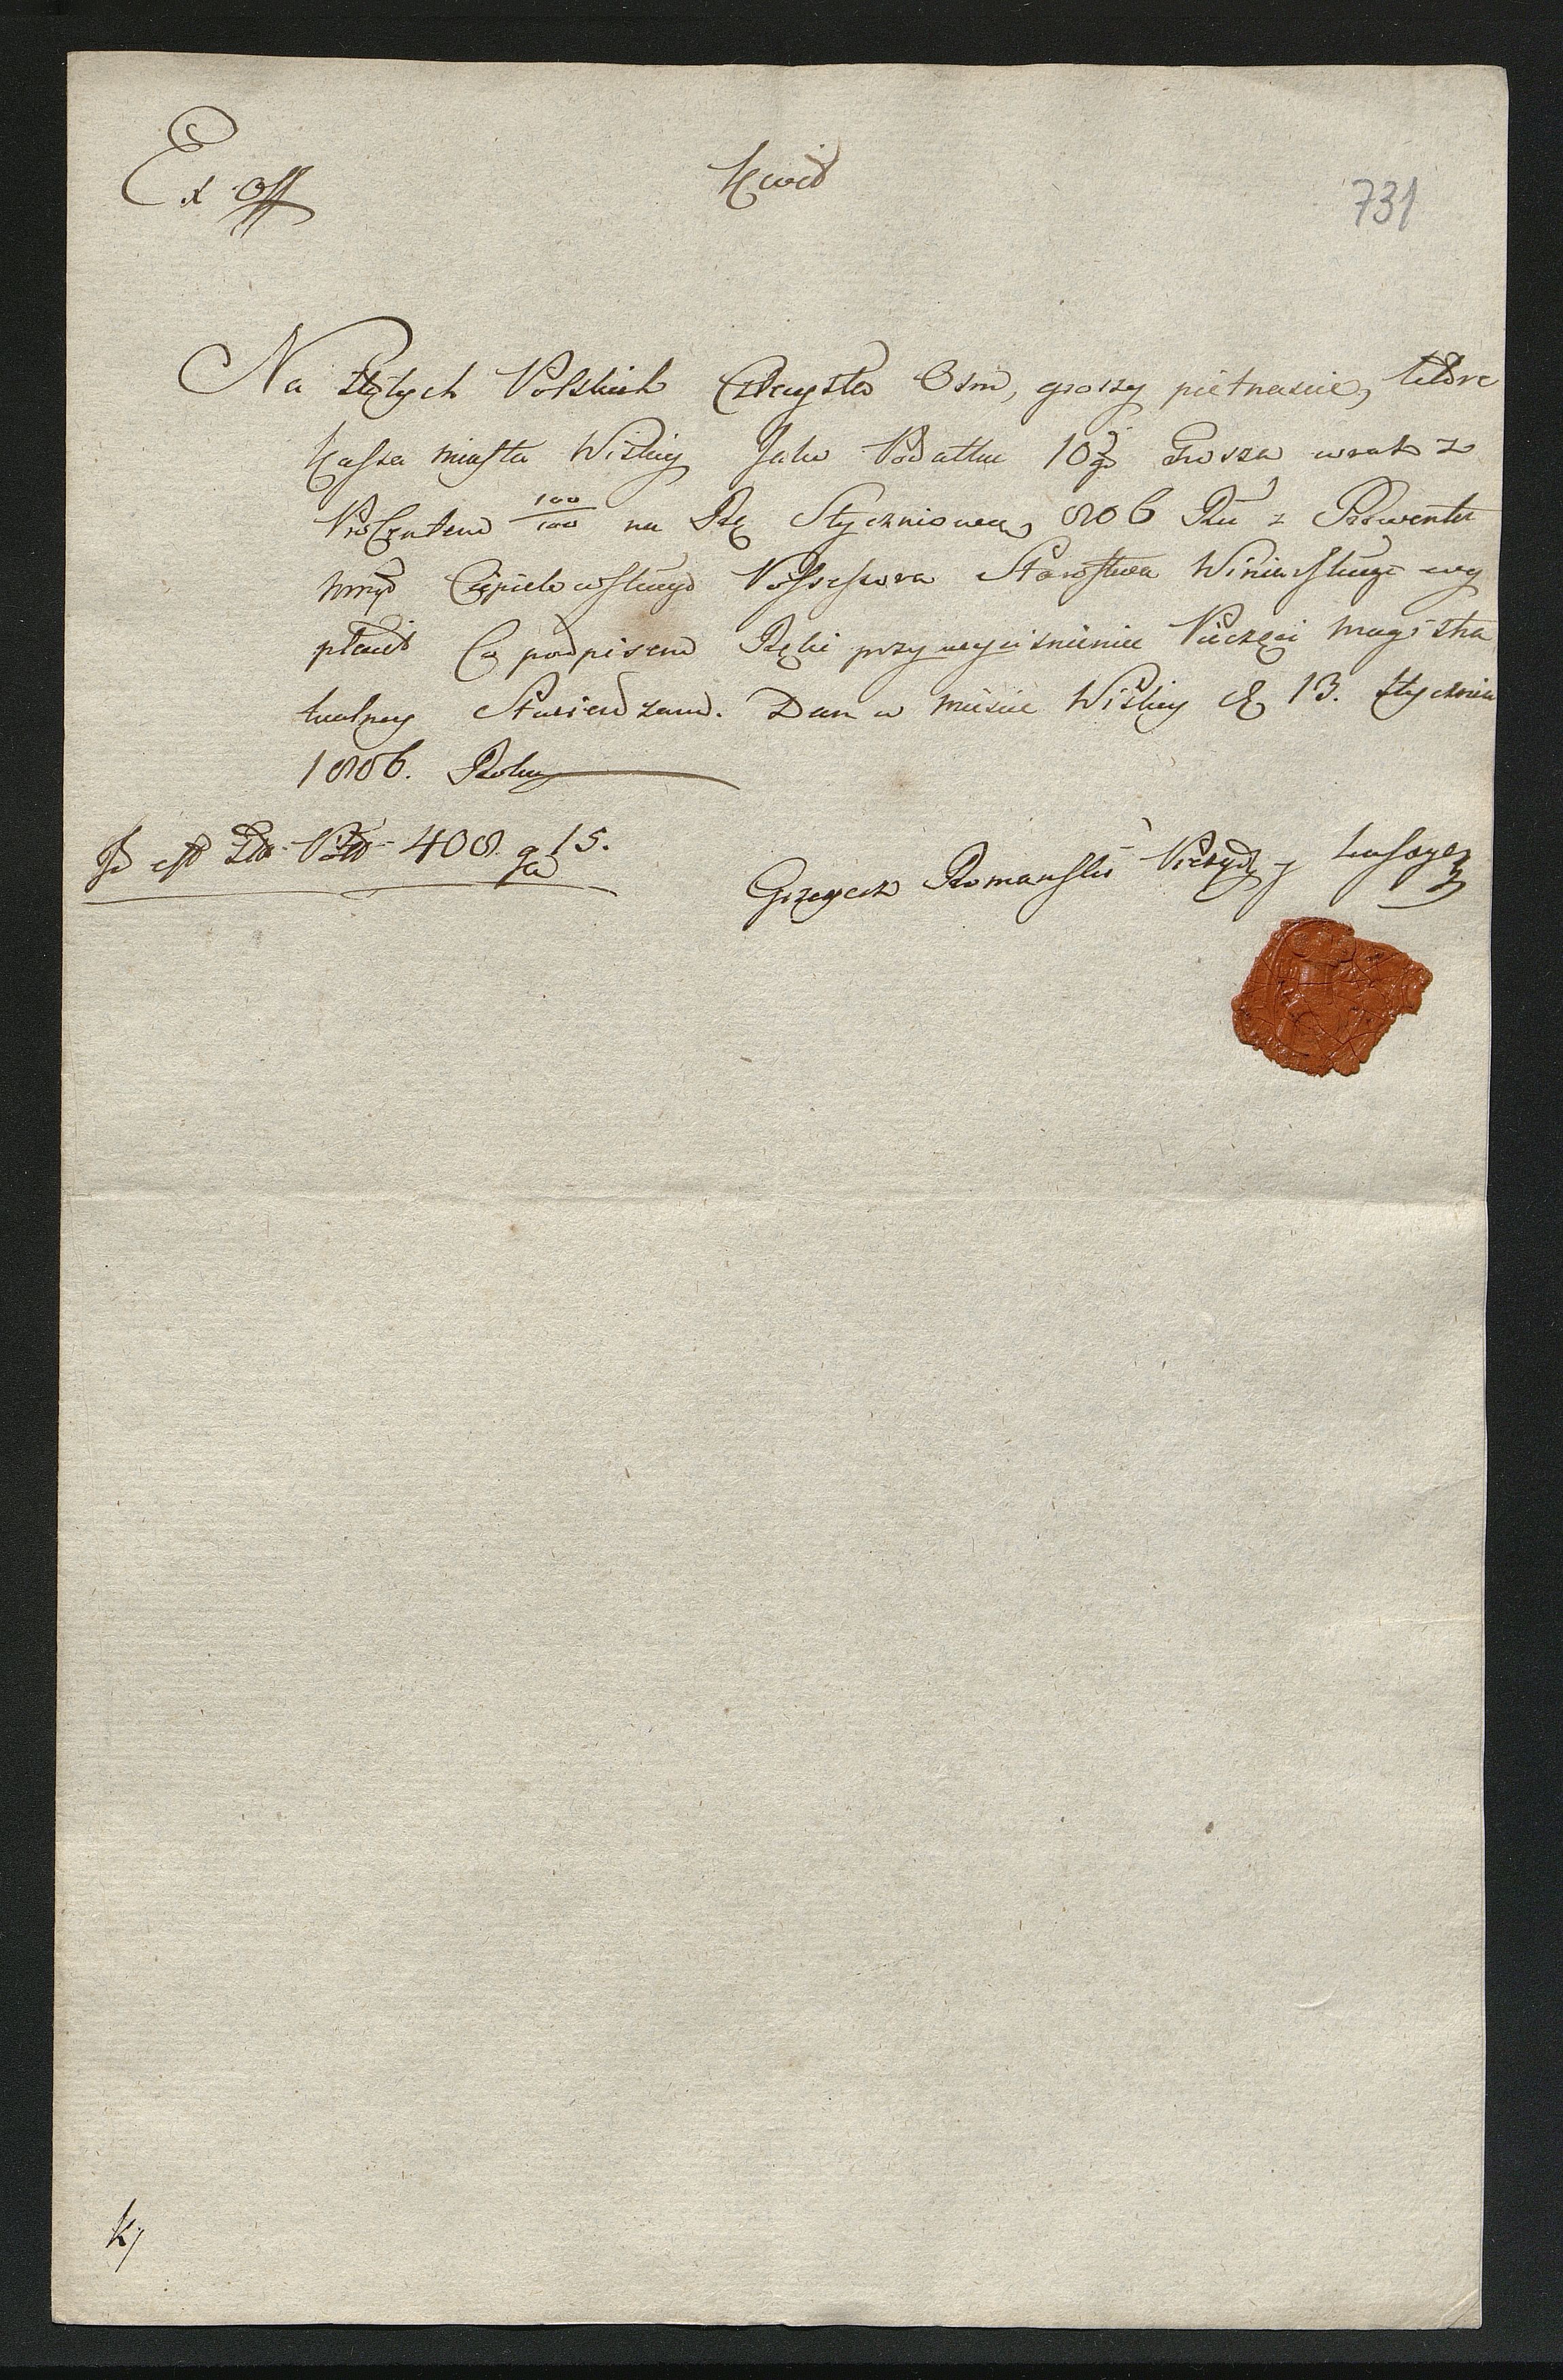 Ex Off
Kwit
731
Na Złotych Polskich Czterysta Osm, groszy pietnascie, ktore
Kassa miasta Wislicy Jako Podatku 10go Grosza wraz z
Procentem 100/100 na Rtę Styczniową 806 Ru z Prowentu
Possessora Starostwa Winiarskiego wy
płacił Co podpisem Ręki przy wyciśnieniu Pieczęci magistra
tualney Stwierdzam. Dan w mieście Wislicy d 13. Stycznia
1806. Roku
Id est Zło Pol 408. gr 15.
Grzegorz Romański Prezyd y Kassyer
k/